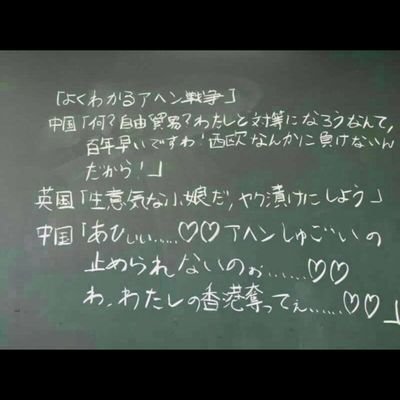 「よくわかるアヘン戦争」
中国「何?自由貿易?わたしと対等になろうなんて、
百年早いですわ!西欧なんかに負けないん
だから!」
英国「生意気な小娘だ、ヤク漬けにしよう」
中国「あひぃぃ......♡♡アヘンしゅごいの
止められないのぉ......♡♡
わ、わたしの香港奪ってぇ......♡♡」